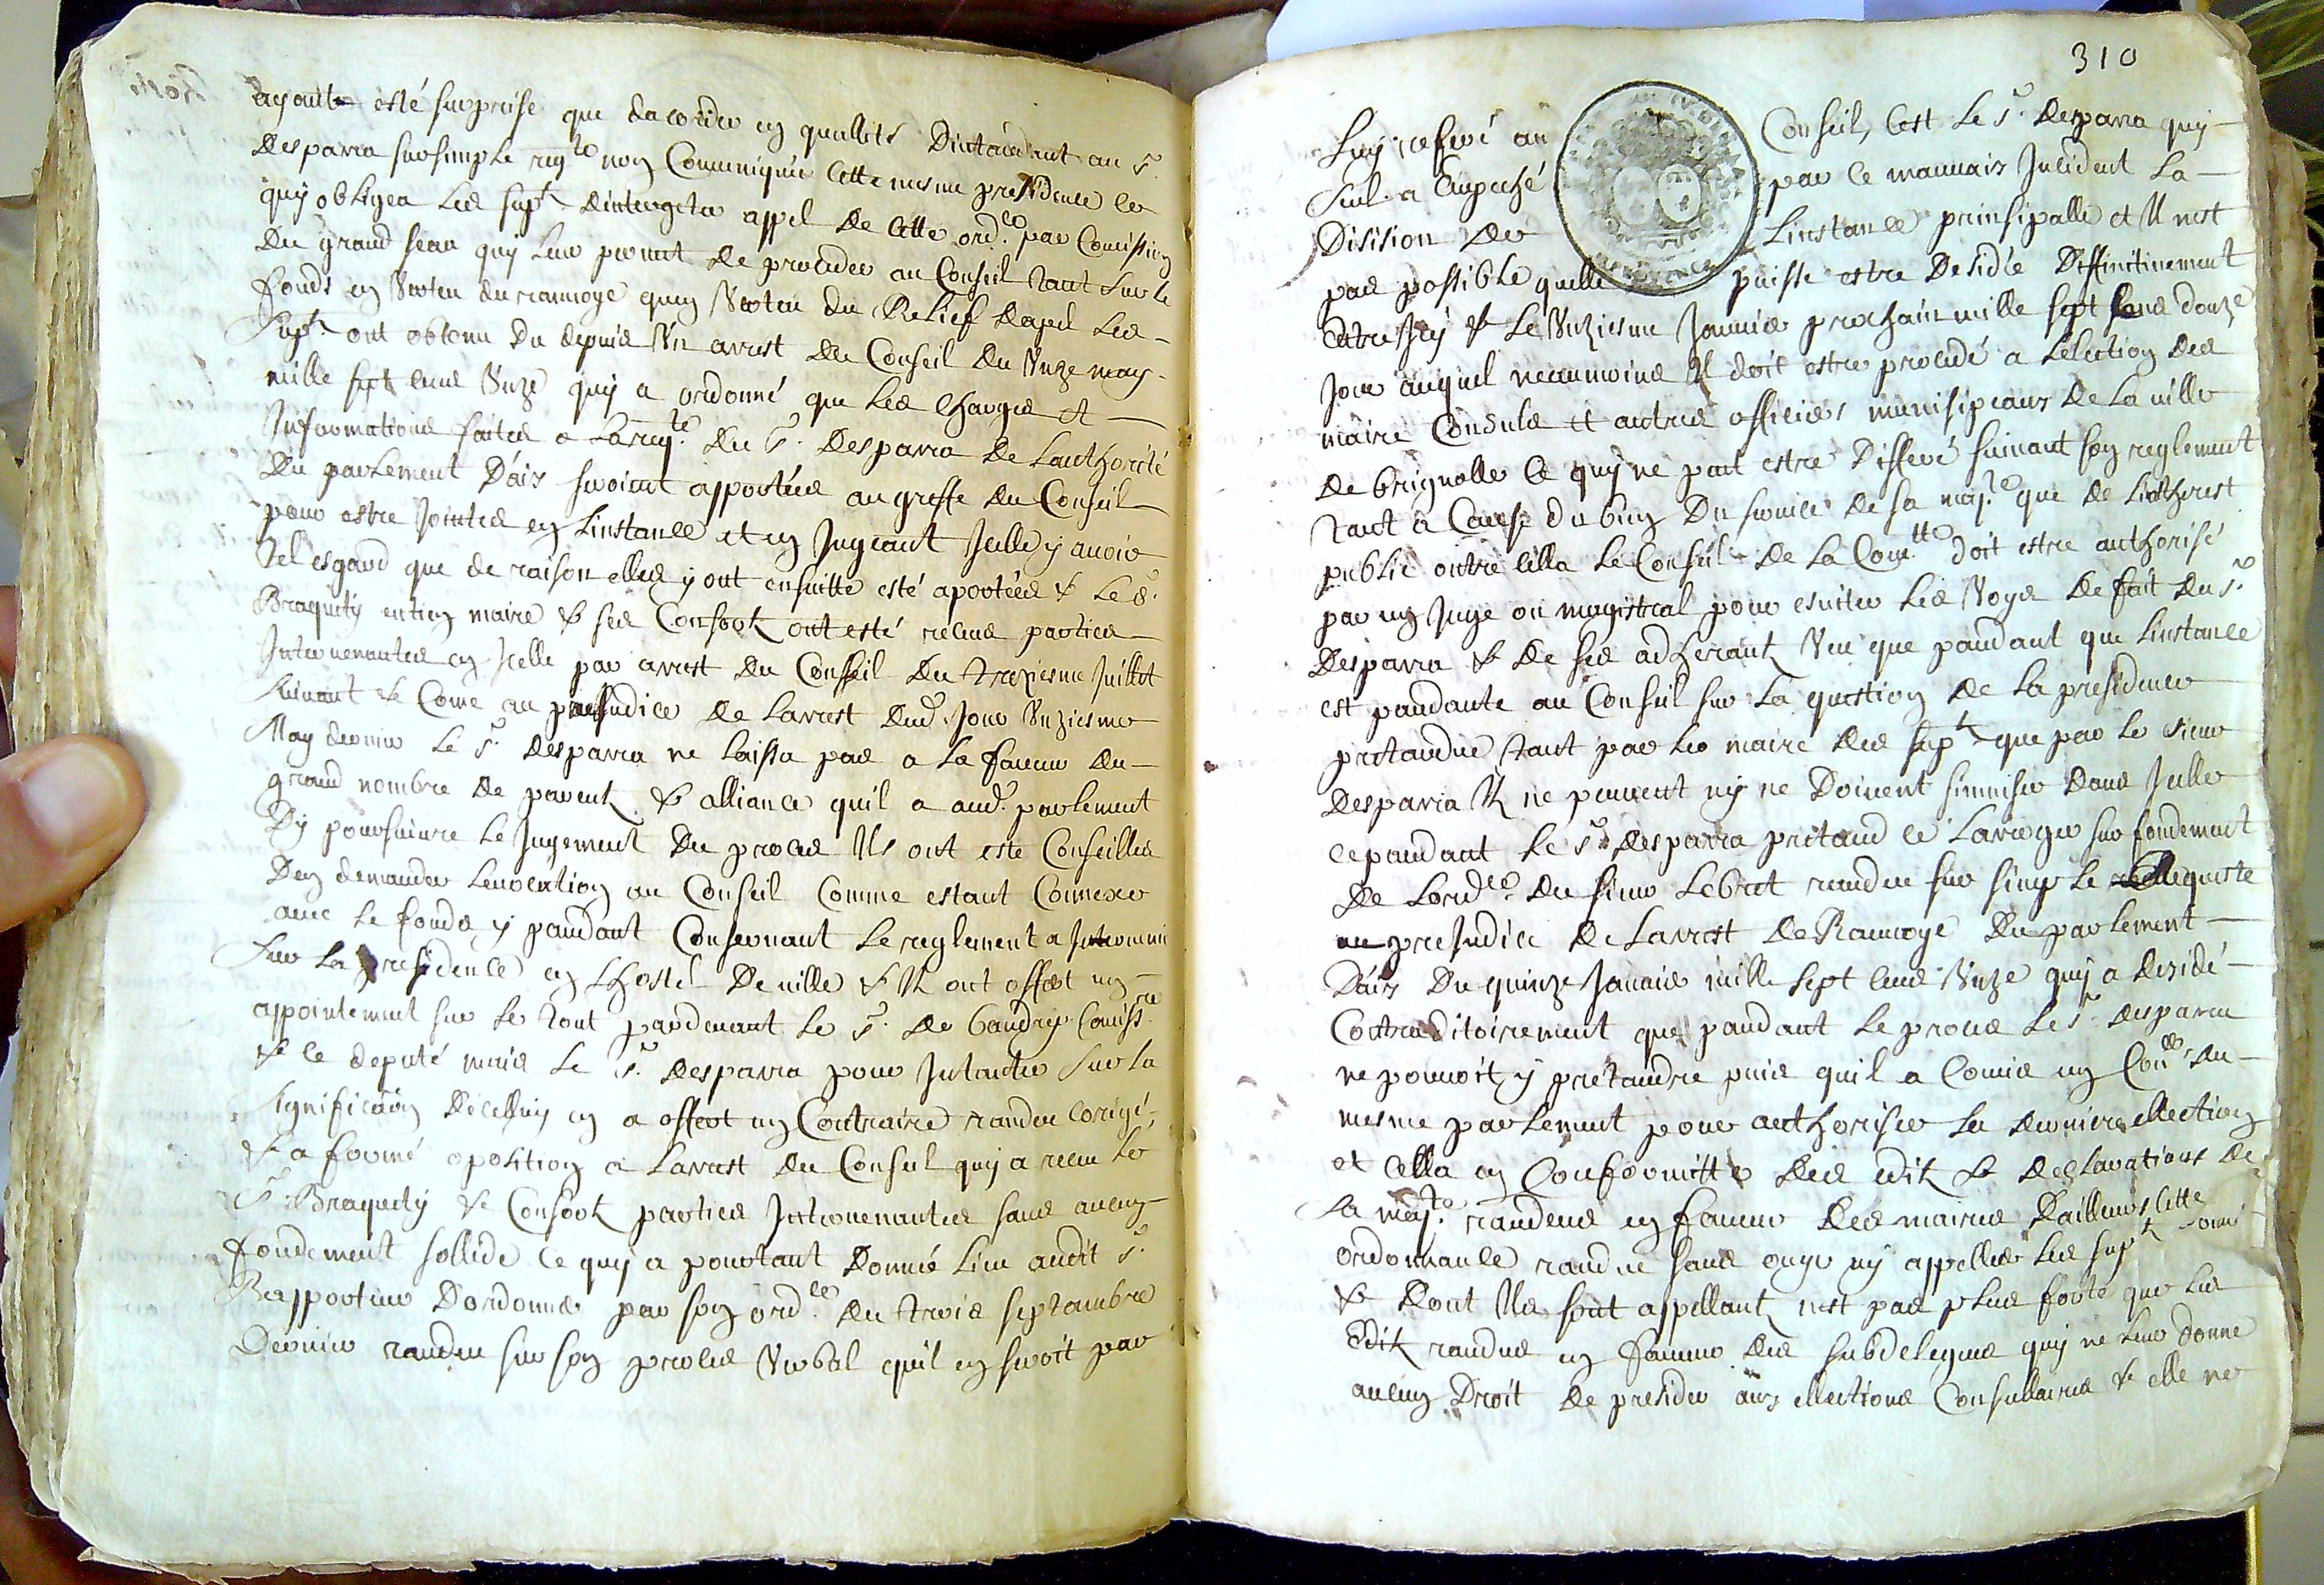 ayante esté surprise que dacorder en quallité Dintandant au sr.
Desparra sur simple reqte non Comuniquée Cette mesme presidence ce
quy obligea les supts. dinterjeter appel de Cette ordce. par Comission
du grand seau quy leur permit de proceder au Conseil tant sur le
fonds en vertu du ranvoye quen vertu du Relief dapel les
supts. ont obtenu du depuis un arrest du Conseil du unze may
mille sept cens unze quy a ordonné que les charges et
Informations faites a la reqte. du Sr. Desparra de lauthorité
du parlement Daix seroint apportées au greffe du Conseil
pour estre Jointes en linstance et en Jugeant Jcelle y avoir
tel esgard que de raison elles y ont ensuitte esté aportées & le Sr.
Braquety entien maire & ses Consortz ont esté reçeus parties
Jntervenantes en Jcelle par arrest du Conseil du treziesme Juillet
suivant & Come au prejudice de larrest dud. Jour unziesme
May dernier le Sr. Desparra ne laissa pas a la faveur du
grand nombre de parentz & alliance quil a aud. parlement
Dy poursuivre le Jugement du proces Ils ont esté Conseilles
Den demander levocation au Conseil Comme estant Connexe
avec le fonds y pandant Conservant le reglement a Jntervenir
sur la presidence en Lhostel de ville & Il ont offert un
appointement sur le tout pardevant le Sr. de Baudry Comissre
& ce deputé mais le Sr. Desparra pour Jntanter sur la
signification dicelluy en a offert un Contraire randu corigé
& a formé oposition a larrest du Conseil quy a receu le
Sr. Braquety & Consortz parties Jntervenantes sans aucun
fondement sollide ce quy a pourtant donné lieu audit Sr.
Rapporteur Dordonner par son ordce. du trois septambre
dernier randue sur son proces verbal quil en seroit par
310
Luy referé au Conseil, Cest le Sr. Desparra quy
seul a Empeché par ce mauvais Jncident la
Disision de Linstance prinsipalle et Il nest
pas possible quelle puisse estre desidée Diffinitivement
entre Jcy & le unziesme Janvier prochain mille sept cens douze
Jour auquel neanmoins Il doit estre procedé a lelection des
maire Consuls et autres officiers munisipeaux de la ville
de brignolle Ce quy ne peut estre Differé suivant son reglement
tant a Cause du bien du service de sa majté. que de linterest
public outre cella le Conseil de la Comtté doit estre authorisé
par un Juge ou magistrat pour esviter les voyes de fait du Sr.
Desparra & de ses adherantz veu que pandant que linstance
est pandante au Conseil sur la question de la presidence
pretandue tant par le maire des supts. que par le sieur
Desparra Il ne peuvent ny ne doivent simmiser dans Jcelle
cepandant le Sr. Desparra pretand ce larroger sur fondement
de lordce. du sieur Lebret randue sur simple requeste
au prejudice de larrest de Ranvoye du parlement
Daix du quinze Janvier mille sept cens unze quy a desidé
Contraditoirement que pandant le proces le Sr. Desparra
ne pouvoit y pretandre puis quil a Comis un Coner. du
mesme parlement pour authoriser la derniere ellection
et cella en Conformitté des editz & declarations de
sa majté. randeus en faveur des maires Dailleurs Cette
ordonnance randue sans ouyr ny appeller les supts.
& dont Ils sont appellantz nest pas plus forte que les
editz randus en faveur des subdelegues quy ne leur donne
aucun Droit de presider aux ellections Consullaires & elle ne